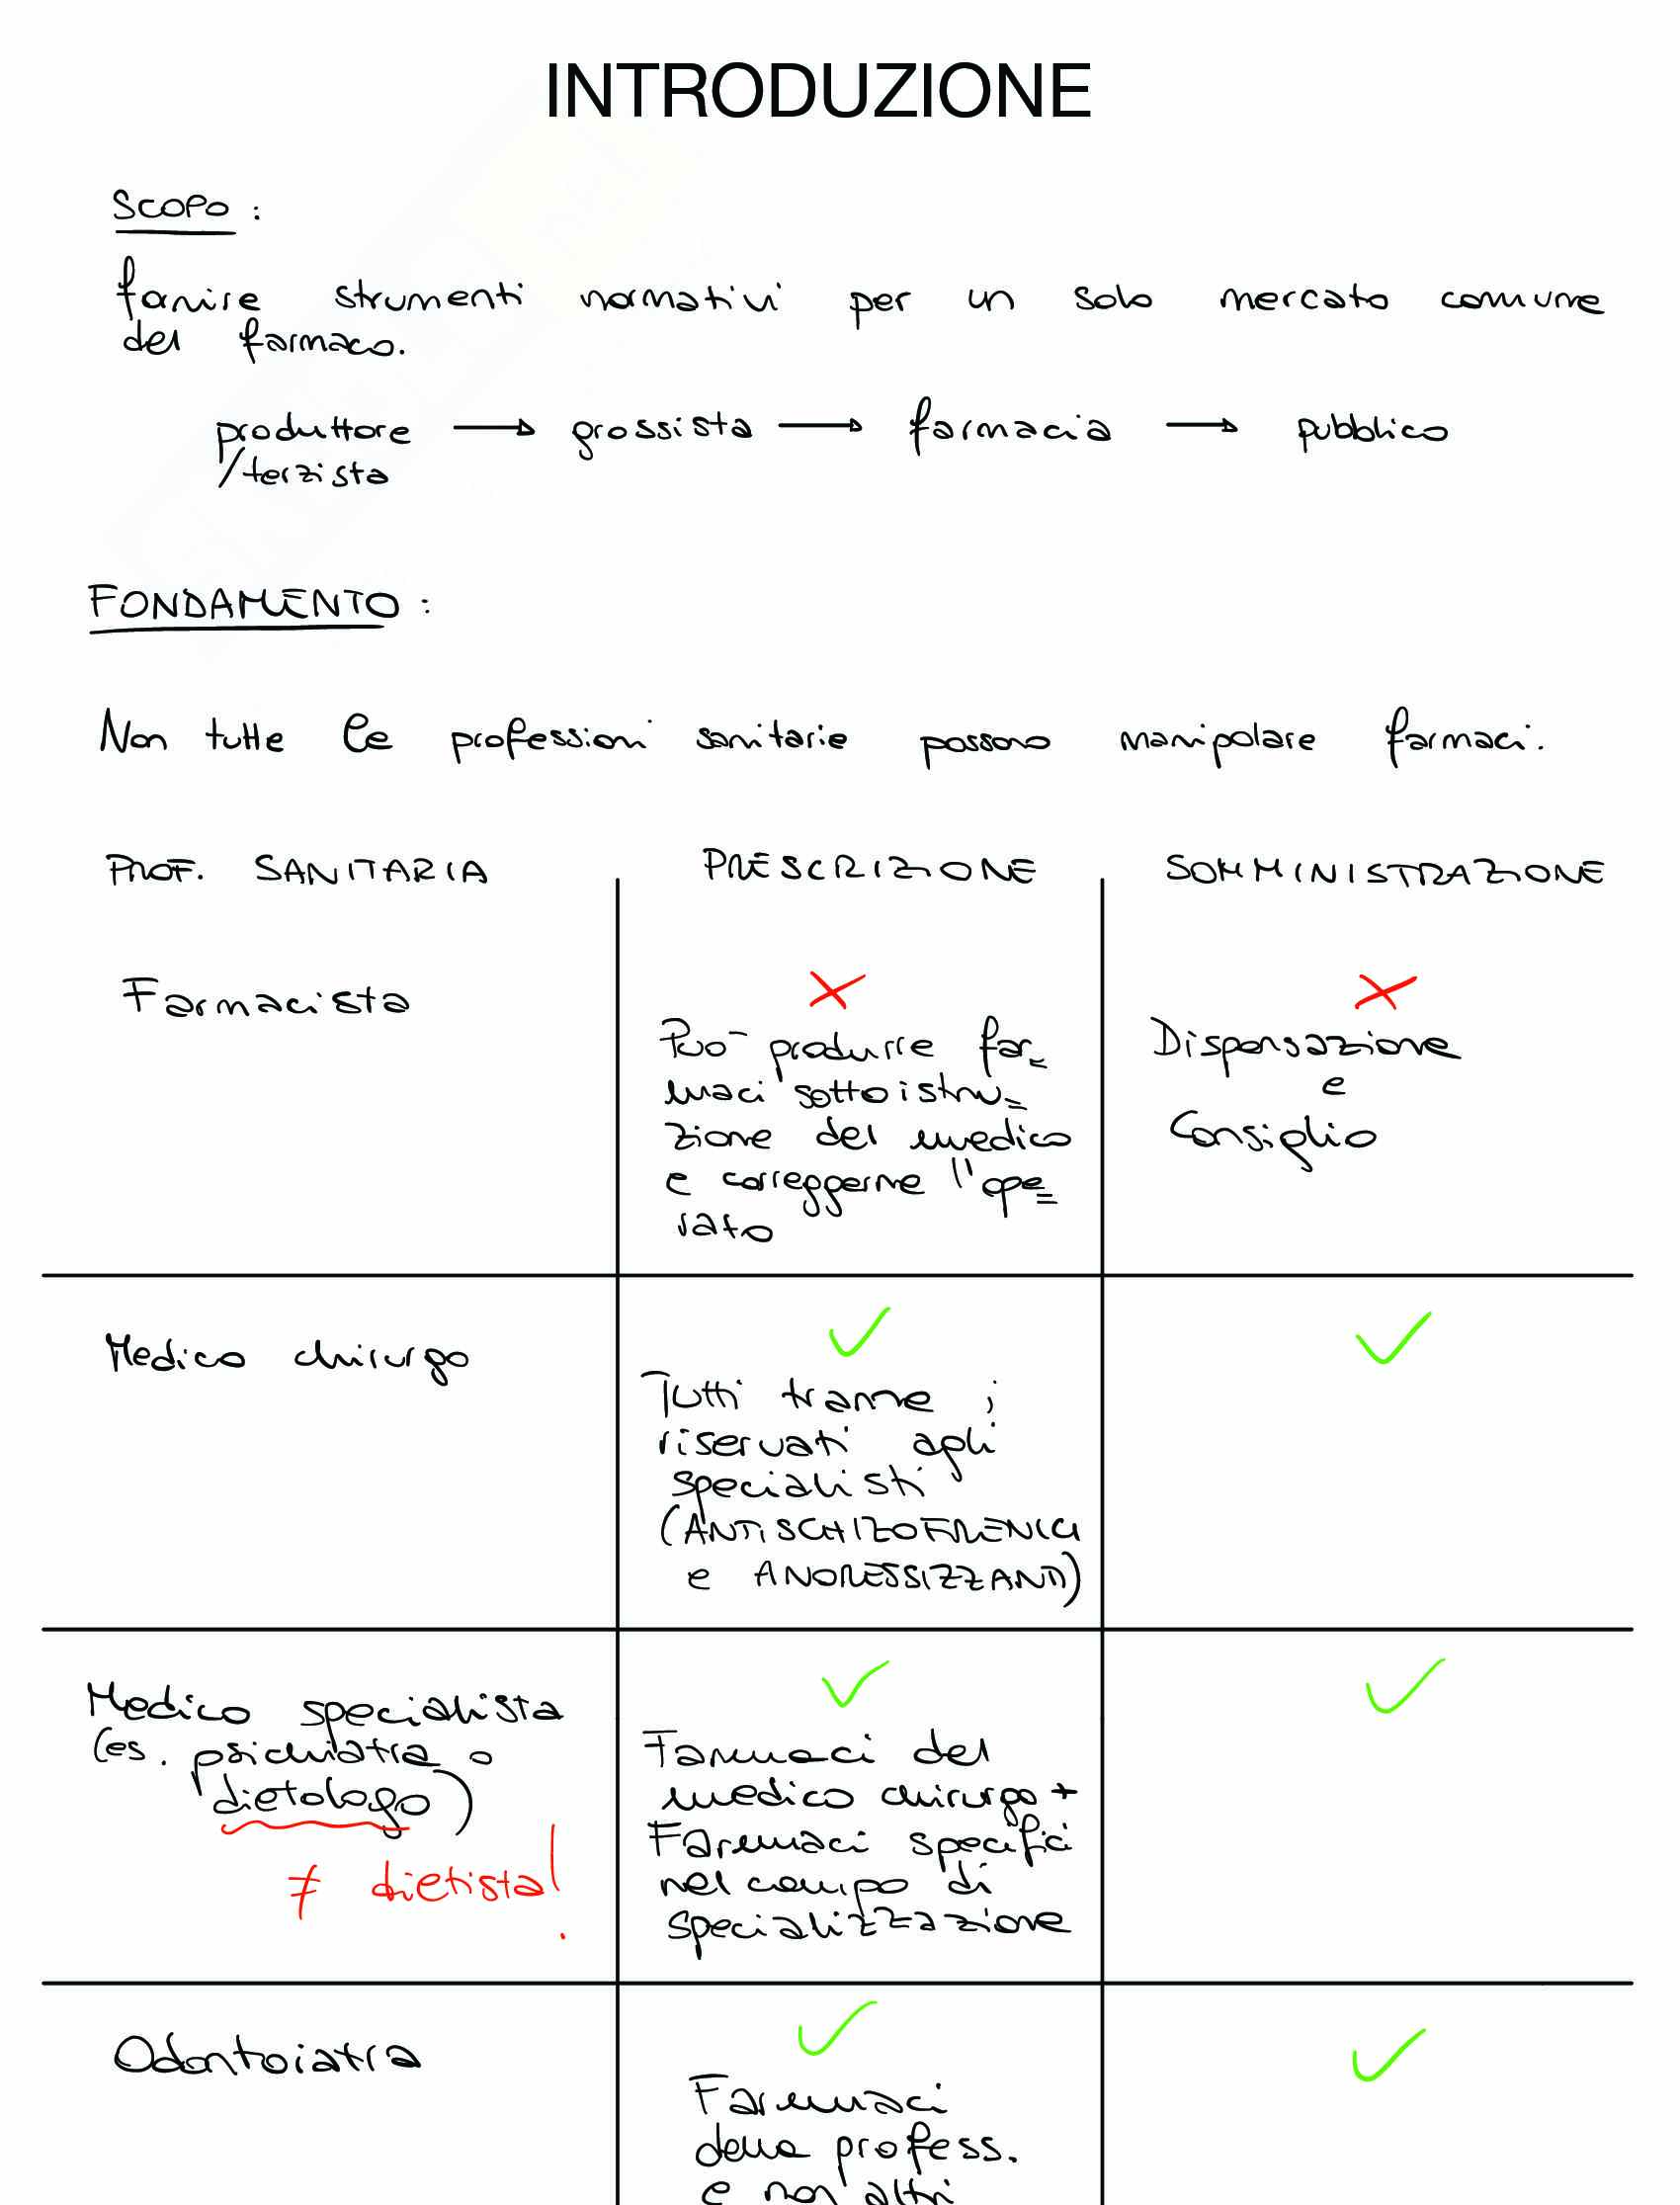 INTRODUZIONE
SCOPO :
fornire strumenti normativi per un solo mercato comune
del farmaco.
produttore → grossista → farmacia → pubblico
/terzista
FONDAMENTO :
Non tutte le professioni sanitarie possono manipolare farmaci.
PROF. SANITARIA PRESCRIZIONE SOMMINISTRAZIONE
Farmacista
✗
Può produrre far=
maci sotto istru=
zione del medico
e correggerne l'ope=
rato
✗
Dispensazione
e
Consiglio
Medico chirurgo
✓
Tutti tranne i
riservati agli
specialisti
(ANTISCHIZOFRENICI
e ANORESSIZZANTI)
✓
Medico specialista
(es. psichiatra o
dietologo)
≠ dietista!
✓
Farmaci del
medico chirurgo +
Farmaci specifici
nel campo di
specializzazione
✓
Odontoiatra
✓
Farmaci
della profess.
e non altri
✓